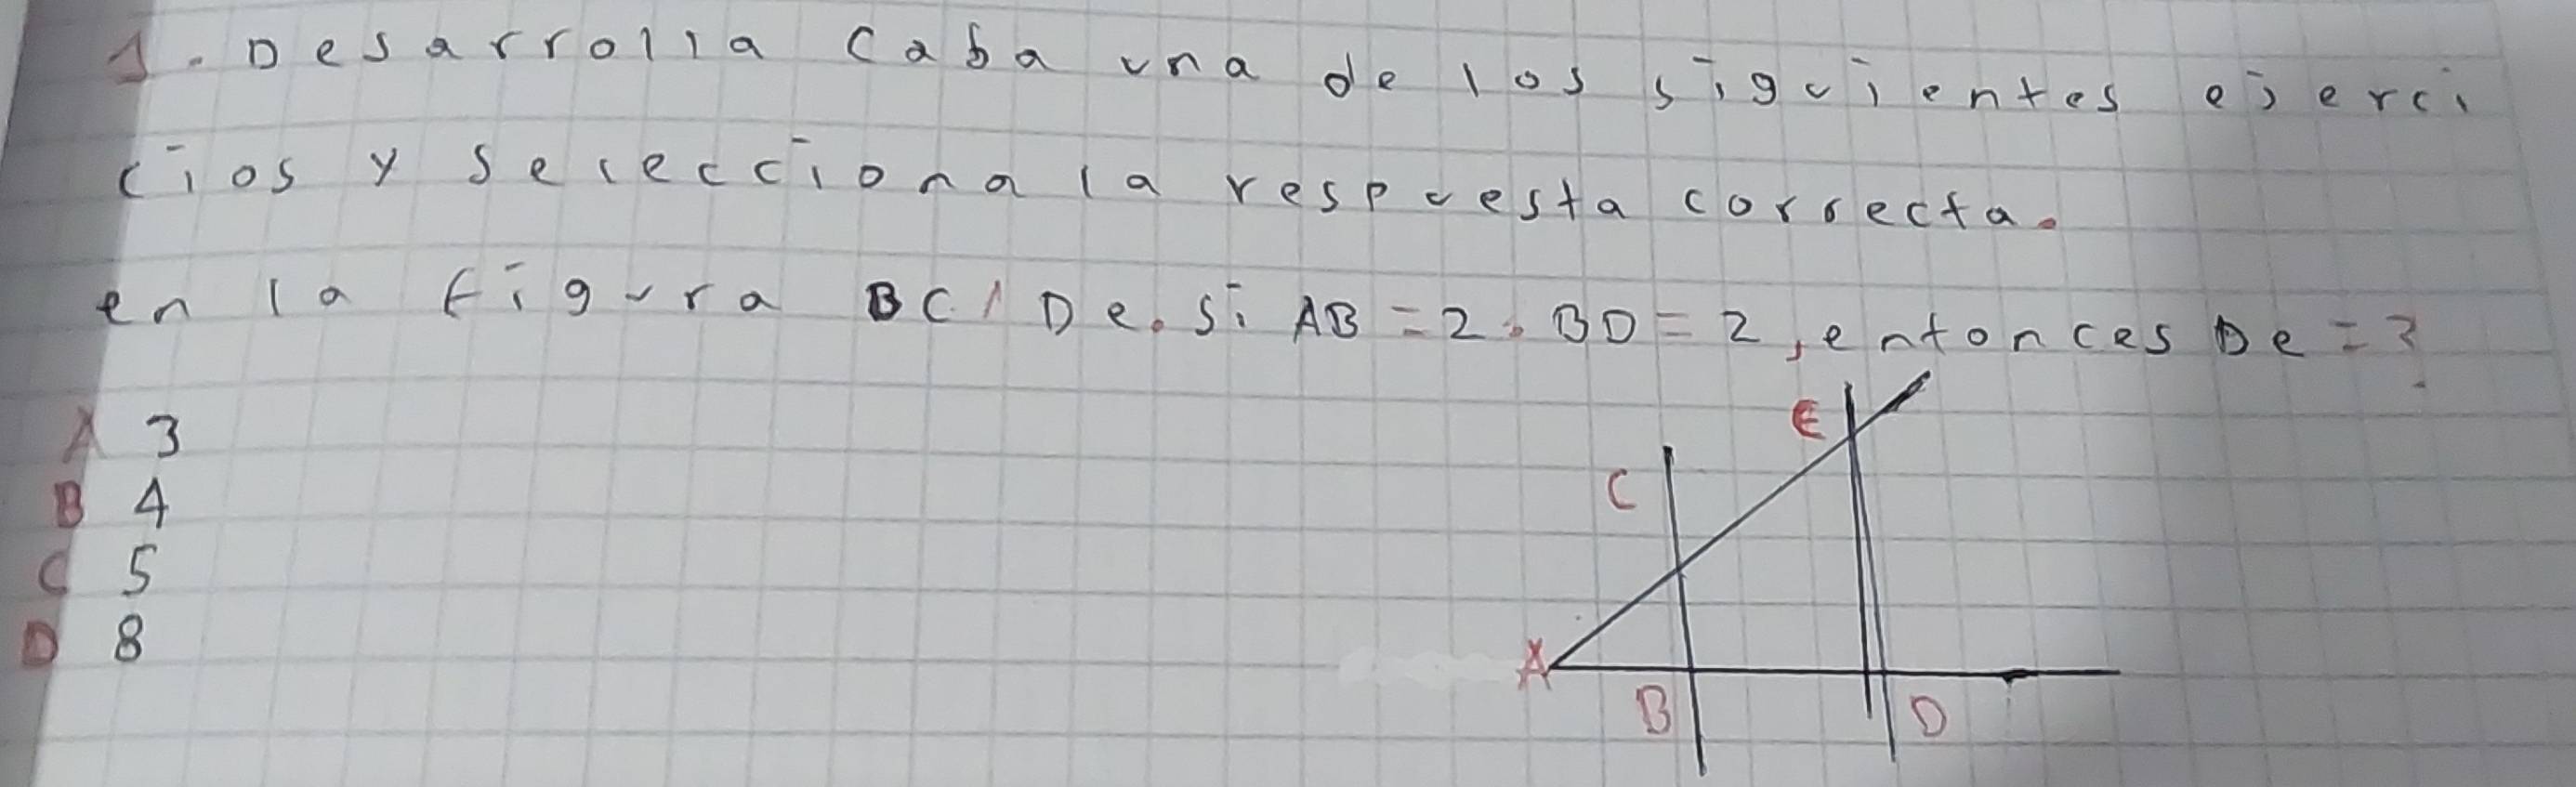 1. Desarrolla Caba una de los siguientes ejerci
cios y selecciona la respuesta correcta.
en la figura BC/De. Si AB=2. BD=2, entonces De=?
A 3
B 4
C 5
D 8
E
C
A
B
D